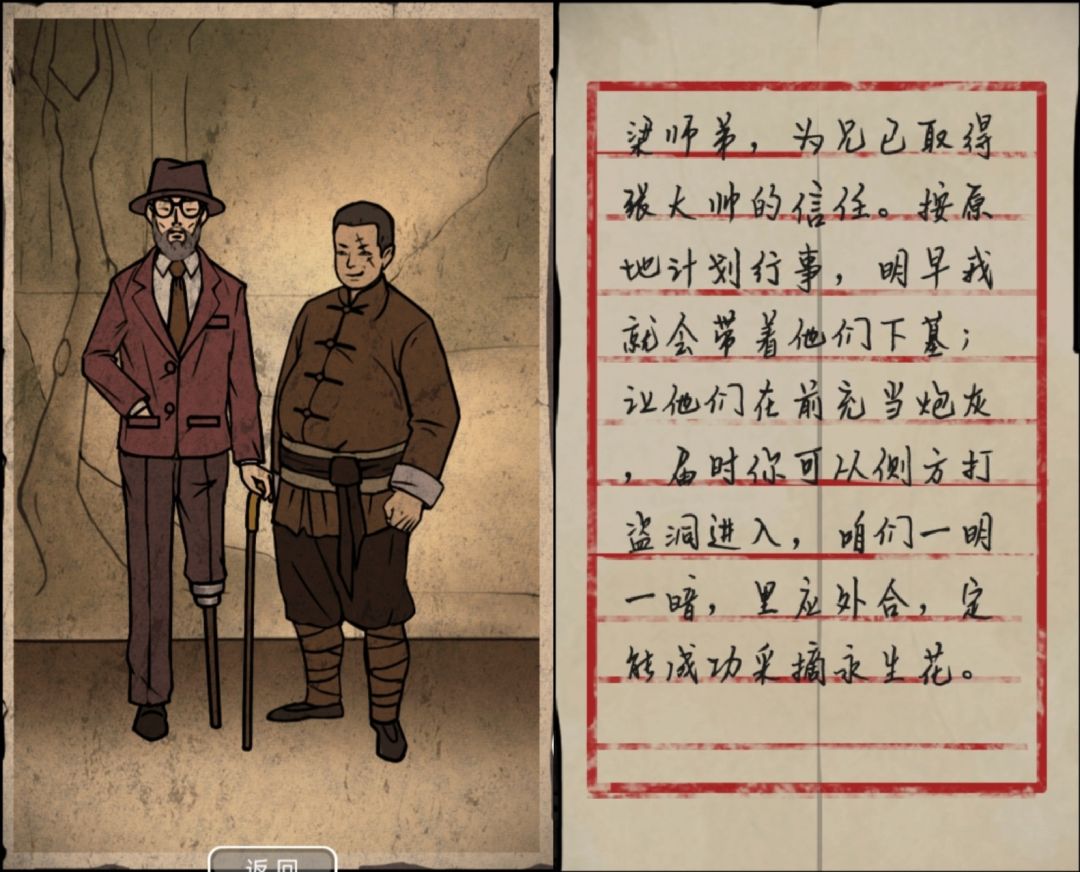 梁师弟，为兄已取得
张大帅的信任。按原
地计划行事，明早我
就会带着他们下墓；
让他们在前充当炮灰
，届时你可从侧方打
盗洞进入，咱们一明
一暗，里应外合，定
能成功采摘永生花。
返回